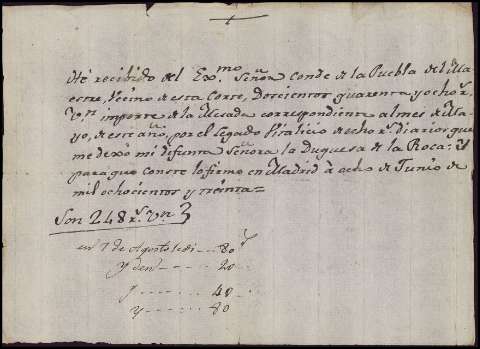 He recibido del Exmo. Señor Conde de la Puebla del Ma
estre, vecino de esta Corte, Doscientos quarenta y ocho rs.
Vn. importe de la Mesada correspondiente al mes de Ma
yo, de este año, por el Legado Vitalicio de ocho rs. diarios que
me dexó mi difunta Señora la Duquesa de la Roca: Y
para que conste lo firmo en Madrid à ocho de Junio de
mil ochocientos y treinta=
Son 248 rs. vn.
en 7 de Agosto 80
Yden 20
40
80